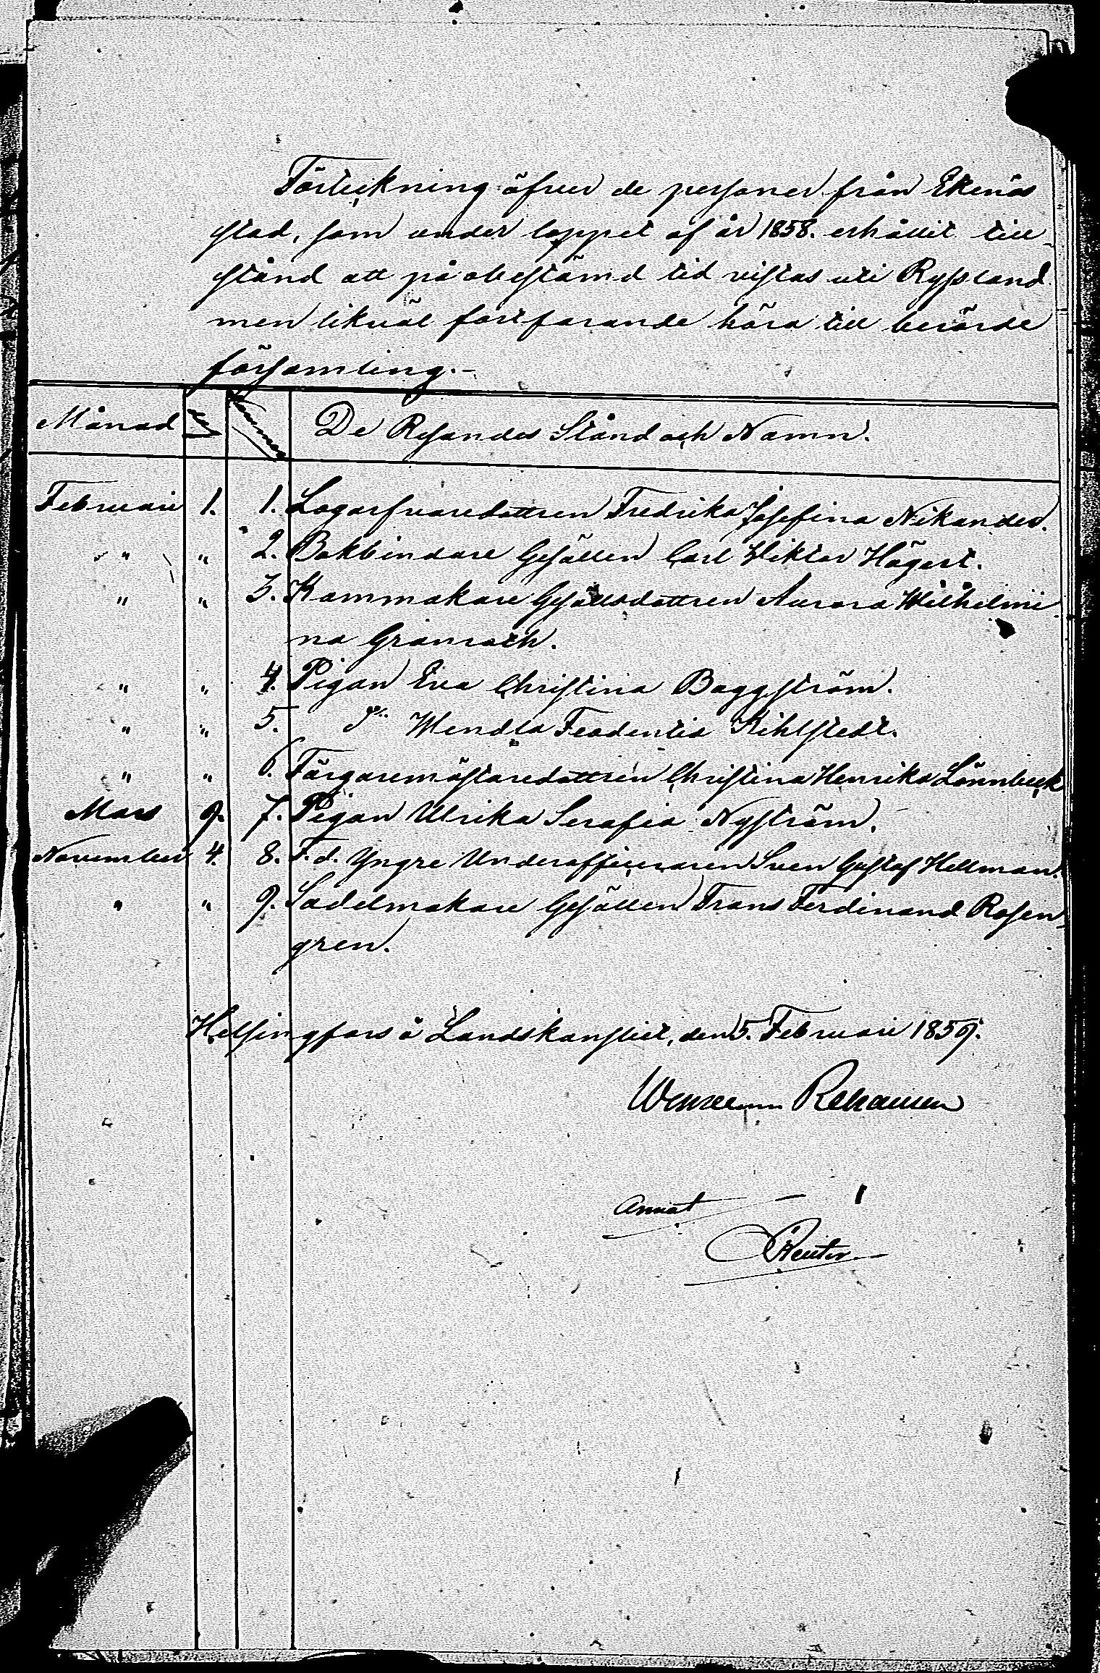 Förteckning öfver de personer från Ekenäs
stad, som under loppet af år 1858. erhållit till-
stånd att på obestämd tid vistas uti Ryssland
men likväl fortfarande höra till berörde
församling.-
Månad Dag Nummer De Resandes Stånd och Namn.
Februari 1. 1. Lagarfvaredottren Fredrika Josefina Nikander.
" " 2. Bokbindare Gesällen Carl Viktor Högert.
" " 3. Kammakare Gesällsdottren Aurora Wilhelmi
na Granroth.
" " 4. Pigan Eva Christina Baggström.
" " 5. d:o Wendla Feodentia Kihlstedt.
" " 6. Färgaremästaredottren Christina Henrika Lönnbeck
Mars 9. 7. Pigan Ulrika Serafia Nyström.
November 4. 8. F. d. Yngre Underofficeraren Sven Gustaf Hellman.
" " 9. Sadelmakare Gesällen Frans Ferdinand Rosen-
gren.
Helsingfors å Landskansliet, den 5. Februari 1859.
Reuter